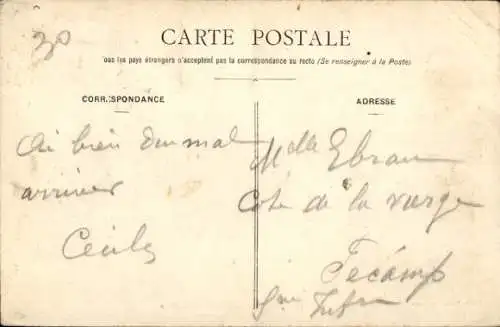 30
CARTE POSTALE
Tous les pays étrangers n'acceptent pas la correspondance au recto (Se renseigner à la Poste)
CORRESPONDANCE
ADRESSE
Ai bien du mal
arriver
Cécile
Mdlle Ebran
Cote de la vierge
Fecamp
Sne Infre